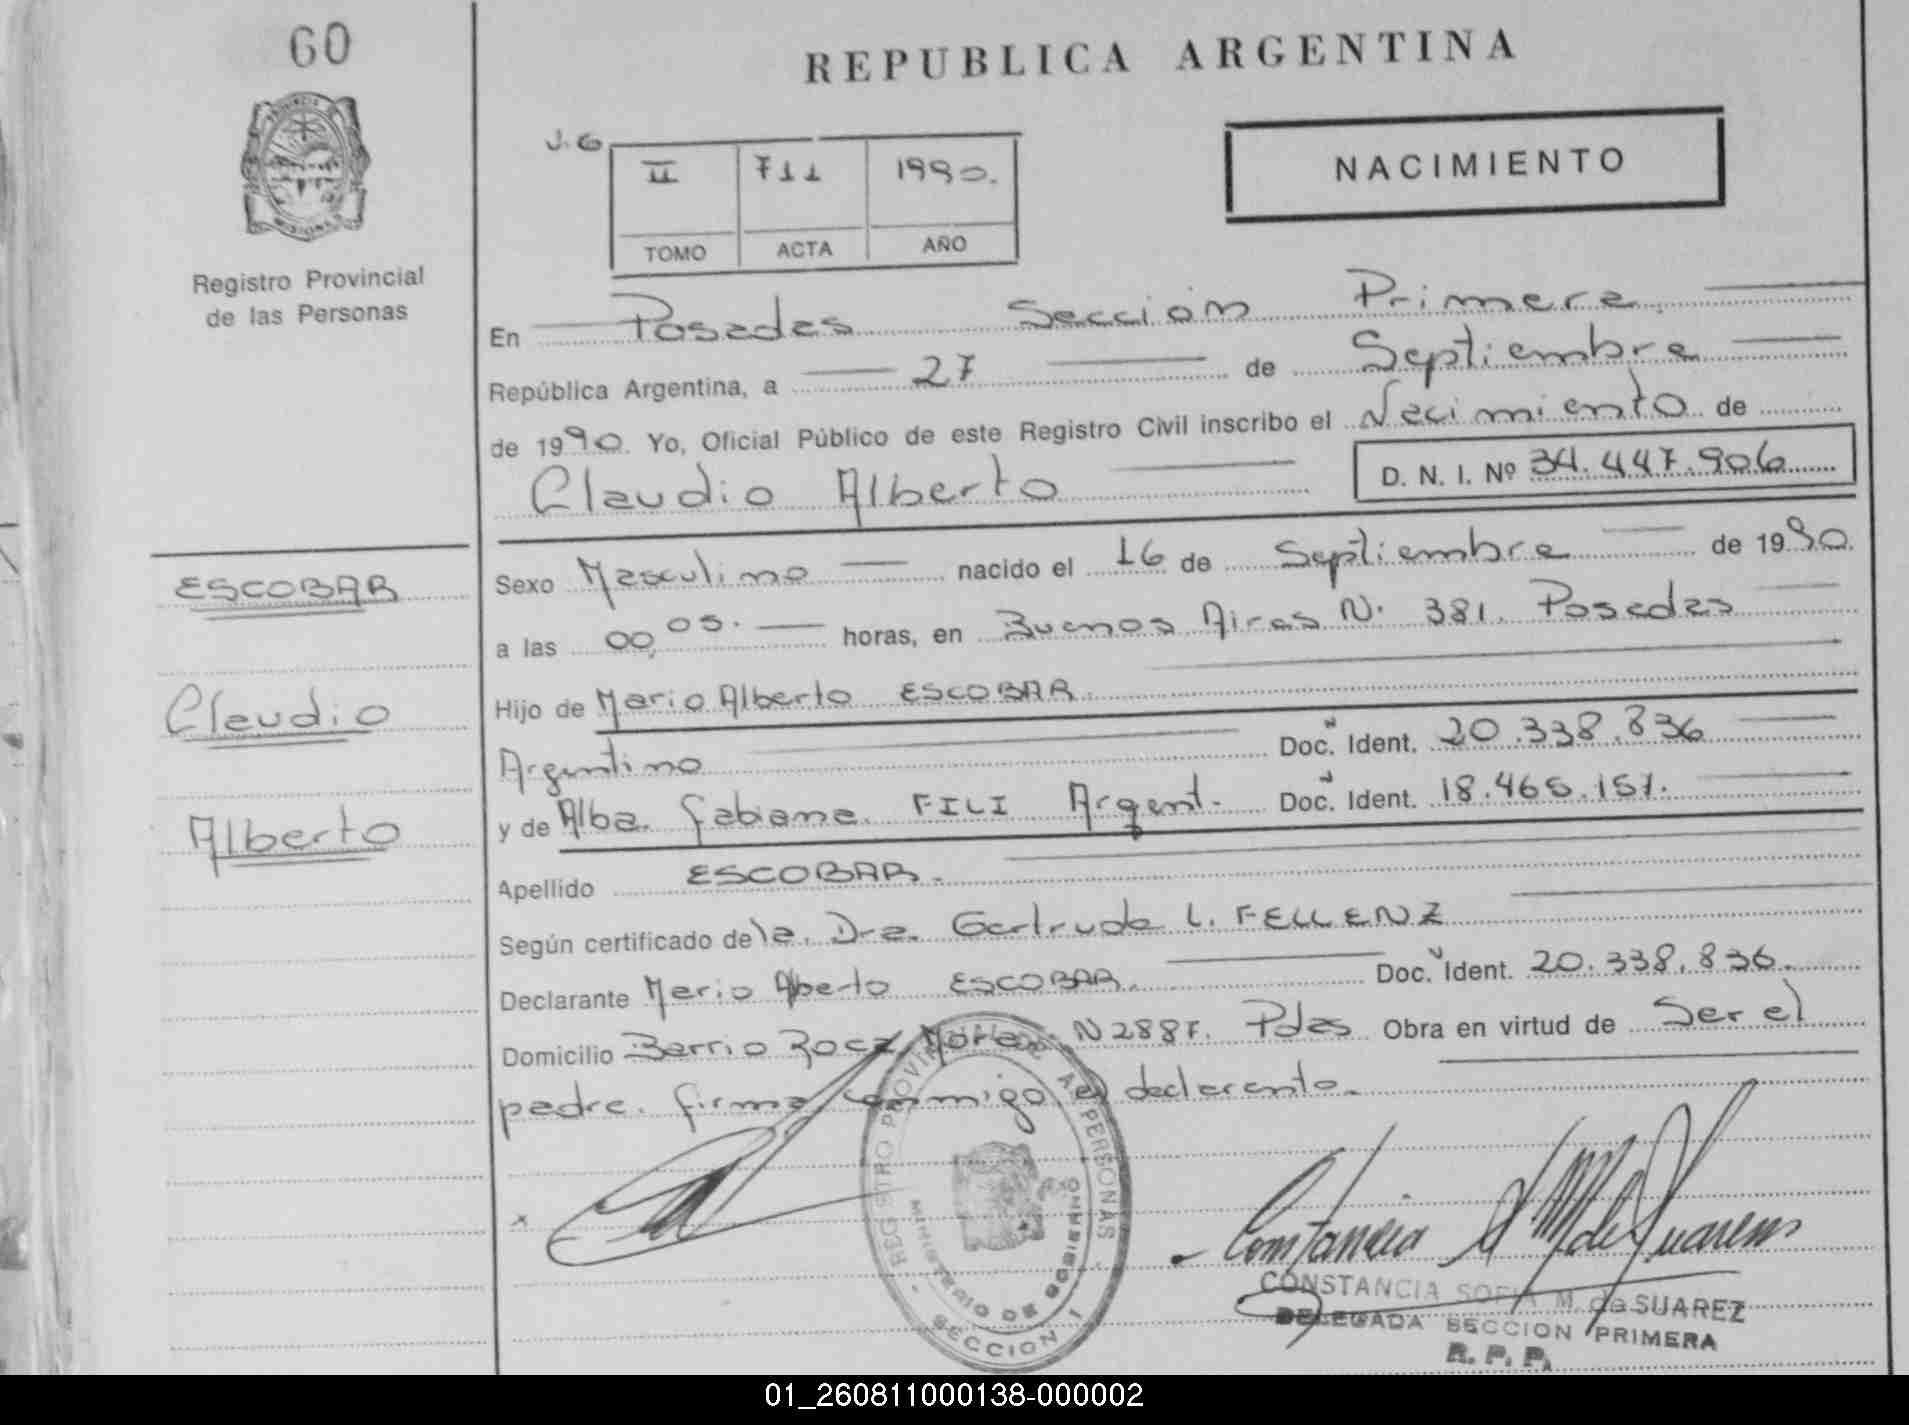 60
REPUBLICA ARGENTINA
PROVINCIA DE
MISIONES
Registro Provincial
de las Personas
NACIMIENTO
J.G
II 711 1990.
TOMO ACTA AÑO
En Posadas Sección Primera
República Argentina, a 27 de Septiembre
de 1990. Yo, Oficial Público de este Registro Civil inscribo el Nacimiento de
Claudio Alberto D. N. I. Nº 34.447.906
ESCOBAR
Claudio
Alberto
Sexo Masculino nacido el 16 de Septiembre de 1990.
a las 00,05. horas, en Buenos Aires N. 381. Posadas
Hijo de Mario Alberto ESCOBAR.
Argentino Doc. Ident. 20.338.836
y de Alba Fabiana FILI Argent. Doc. Ident. 18.465.151.
Apellido ESCOBAR.
Según certificado de la Dra. Gertrude L. FELLENZ
Declarante Mario Alberto ESCOBAR. Doc. Ident. 20.338.836.
Domicilio Barrio Roca N 2887. Pdas Obra en virtud de Ser el
padre. firma conmigo el declarante.
x
REGISTRO PROVINCIAL DE LAS PERSONAS
MINISTERIO DE GOBIERNO
SECCION 1
Constancia S M de Suarez
CONSTANCIA SOFIA M. de SUAREZ
DELEGADA SECCION PRIMERA
R. P. P.
01_260811000138-000002